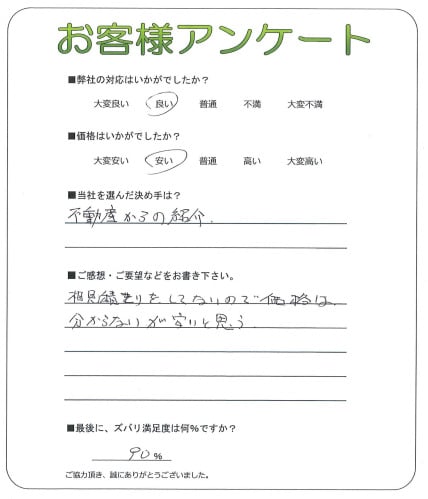 お客様アンケート
■弊社の対応はいかがでしたか?
大変良い 良い 普通 不満 大変不満
■価格はいかがでしたか?
大変安い 安い 普通 高い 大変高い
■当社を選んだ決め手は?
不動産からの紹介.
■ご感想・ご要望などをお書き下さい。
相見積もりをしてないので価格は、
分からないが安いと思う
■最後に、ズバリ満足度は何%ですか?
90 %
ご協力頂き、誠にありがとうございました。